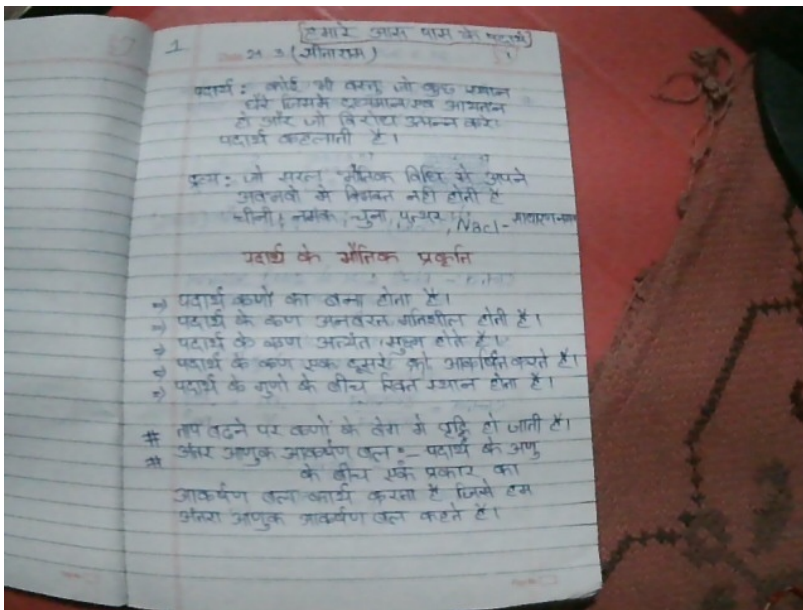 1
हमारे आस पास के पदार्थ
(सीताराम)
पदार्थ : कोई भी वस्तु जो कुछ स्थान
घेरे जिसमे द्रव्यमान एवं आयतन
हो और जो विरोध उत्पन्न करे।
पदार्थ कहलाती है।
द्रव्य : जो सरल भौतिक विधि से अपने
अवयवो मे विभक्त नही होती है
चीनी, नमक, चुना, पत्थर, Nacl- साधारण नमक
पदार्थ के भौतिक प्रकृति
⇒ पदार्थ कणो का बना होता है।
⇒ पदार्थ के कण अनवरत गतिशील होती है।
⇒ पदार्थ के कण अत्यंत सुक्ष्म होते है।
⇒ पदार्थ के कण एक दूसरे को आकर्षित करते है।
⇒ पदार्थ के गुणो के बीच रिक्त स्थान होता है।
# ताप बढने पर कणो के वेग मे वृद्धि हो जाती है।
# अंतर आणुक आकर्षण बल :- पदार्थ के अणु
के बीच एक प्रकार का
आकर्षण बल कार्य करता है जिसे हम
अंतरा आणुक आकर्षण बल कहते है।